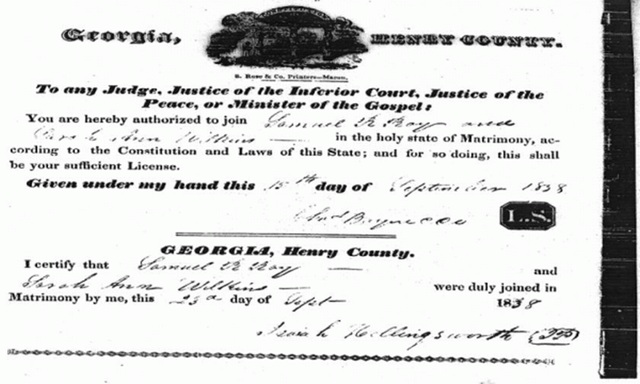 Georgia, HENRY COUNTY.
S. Rose & Co. Printers—Macon.
To any Judge, Justice of the Inferior Court, Justice of the
Peace, or Minister of the Gospel:
You are hereby authorized to join Samuel R Ray and
Sarah Ann Wilkins in the holy state of Matrimony, ac-
cording to the Constitution and Laws of this State; and for so doing, this shall
be your sufficient License.
Given under my hand this 15th day of September 1838
L.S.
GEORGIA, Henry County.
I certify that Samuel R Ray and
Sarah Ann Wilkins were duly joined in
Matrimony by me, this 23d day of Sept 1838
Isaiah Hollingsworth